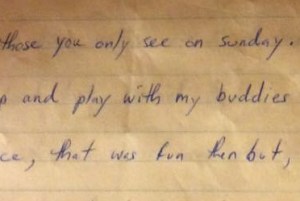 those you only see on sunday.
p and play with my buddies
ce, that was fun then but,